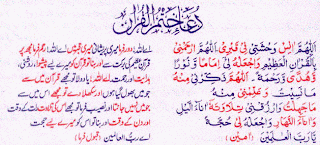 دُعَاءُ خَتْمِ الْقُرْاٰن
اَللّٰهُمَّ اٰنِسْ وَحْشَتِیْ فِیْ قَبْرِیْ اَللّٰهُمَّ ارْحَمْنِیْ
بِالْقُرْاٰنِ الْعَظِیْمِ وَاجْعَلْهُ لِیْ اِمَامًا وَّنُوْرًا
وَّهُدًی وَّرَحْمَةً اَللّٰهُمَّ ذَكِّرْنِیْ مِنْهُ
مَا نَسِیْتُ وَعَلِّمْنِیْ مِنْهُ
مَا جَهِلْتُ وَارْزُقْنِیْ تِلَاوَتَهٗ اٰنَآءَ الَّیْلِ
وَاٰنَآءَ النَّهَارِ وَاجْعَلْهُ لِیْ حُجَّةً
یَّا رَبَّ الْعٰلَمِیْنَ (اٰمین)
اے اللہ! دور فرما میری پریشانی میری قبر میں اے اللہ! رحم فرما مجھ پر
قرآن عظیم کی برکت سے اور بنا تو قرآن کو میرے لیے پیشوا، روشنی،
ہدایت اور رحمت اے اللہ! یاد دلا تو مجھے قرآن میں سے
جو میں بھول گیا ہوں اور سکھلا دے تو مجھے اس میں سے
جو میں نہیں جانتا اور نصیب فرما تو مجھے اس کی تلاوت رات کے وقت
اور دن کے وقت اور بنا تو اس کو میرے لیے حجت
اے رب العالمین (قبول فرما)